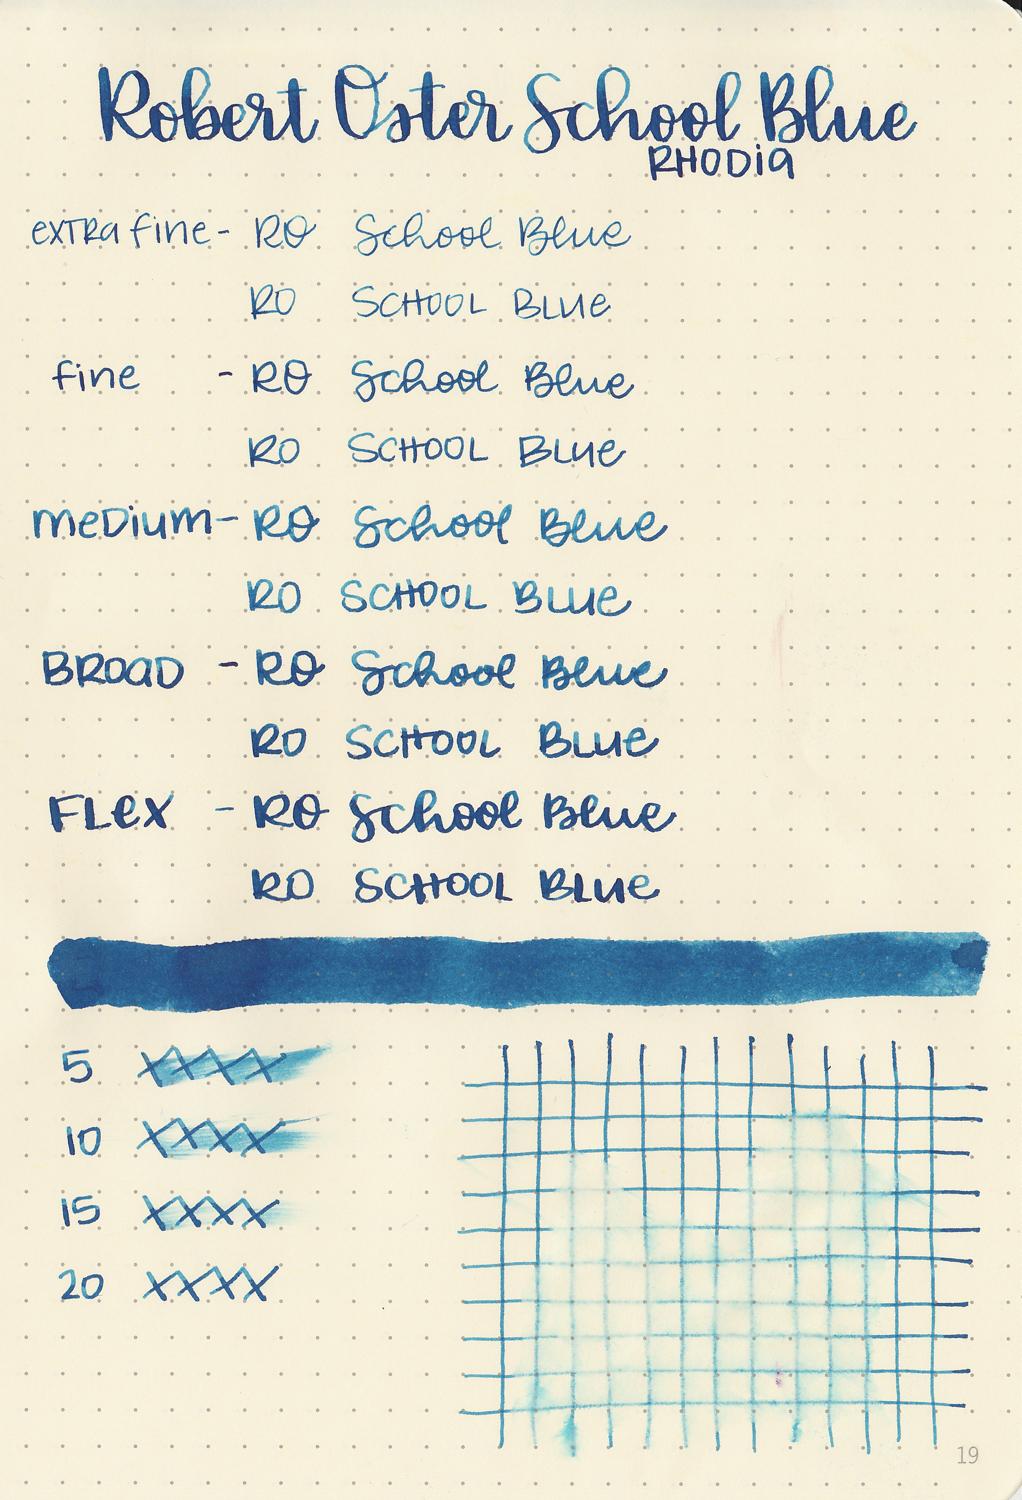 Robert Oster School Blue
RHODIA
extra fine - RO School Blue
RO SCHOOL BLUE
fine - RO School Blue
RO SCHOOL BLUE
medium - RO School Blue
RO SCHOOL BLUE
BROAD - RO School Blue
RO SCHOOL BLUE
FLEX - RO School Blue
RO SCHOOL BLUE
5 XXXX
10 XXXX
15 XXXX
20 XXXX
19